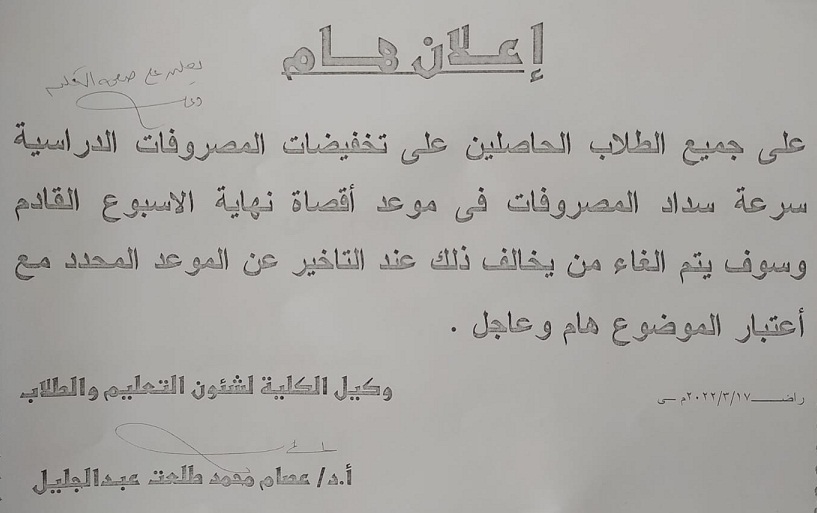 إعلان هام
يعلن على صفحة الكلية
على جميع الطلاب الحاصلين على تخفيضات المصروفات الدراسية
سرعة سداد المصروفات فى موعد أقصاة نهاية الاسبوع القادم
وسوف يتم الغاء من يخالف ذلك عند التاخير عن الموعد المحدد مع
أعتبار الموضوع هام وعاجل .
وكيل الكلية لشئون التعليم والطلاب
راضـــــ٢٠٢٢/٣/١٧م ــى
أ.د/ عصام محمد طلعت عبدالجليل